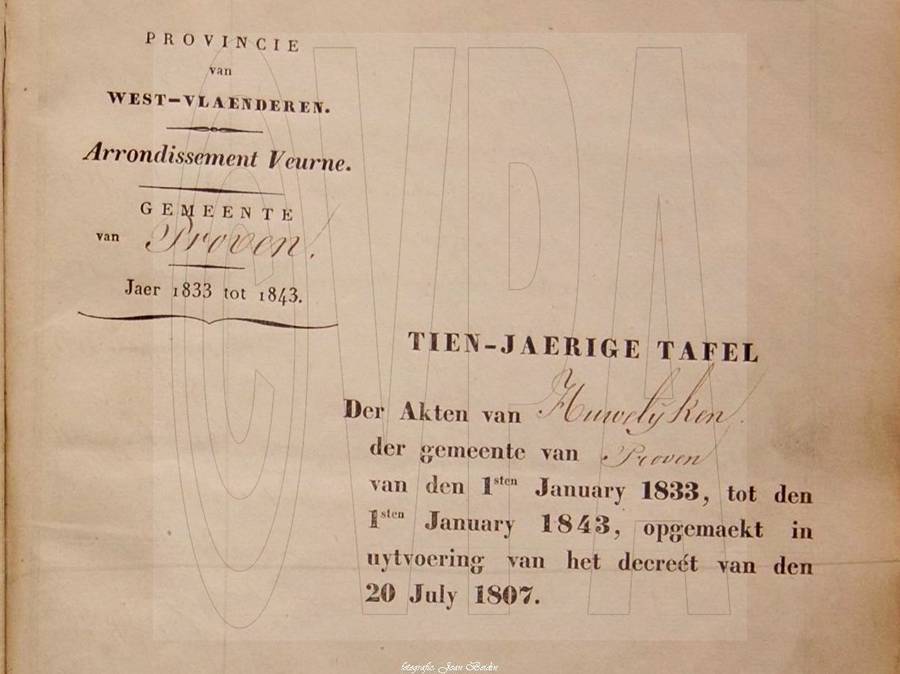 PROVINCIE
van
WEST-VLAENDEREN.
Arrondissement Veurne.
GEMEENTE
van Proven
Jaer 1833 tot 1843.
TIEN-JAERIGE TAFEL
Der Akten van Huwelyken
der gemeente van Proven
van den 1sten January 1833, tot den
1sten January 1843, opgemaekt in
uytvoering van het decreét van den
20 July 1807.
fotografie: Joan Beidin